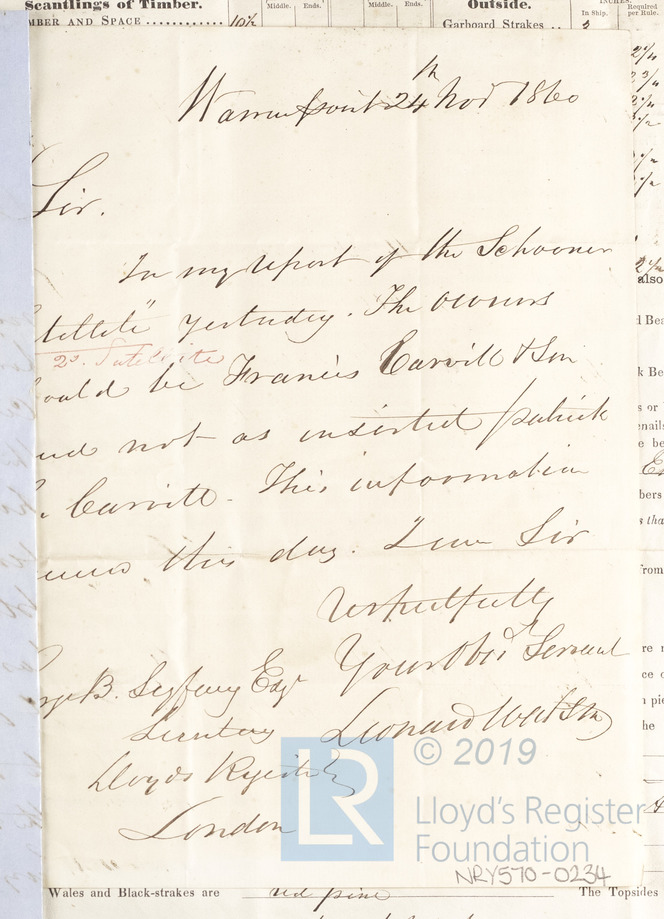 Scantlings of Timber.
Middle. Ends. Middle. Ends.
Outside.
In Ship.
Required per Rule.
MBER AND SPACE ............ 10½
Garboard Strakes ..
Warrenpoint 24th Novr 1860
Sir.
In my report of the Schooner
tellite" yesterday. The owners
2d. Satelite
ould be Francis Carvill & Son
nd not as inserted Patrick
. Carvill. This information
this day. I am Sir
respectfully
Your Obt Servant
rge B. Seyfang Esqr
Leonard Watson
Secretary
Lloyds Register
London
LR
© 2019
Lloyd's Register
Foundation
NRY570-0234
Wales and Black-strakes are red pine
The Topsides